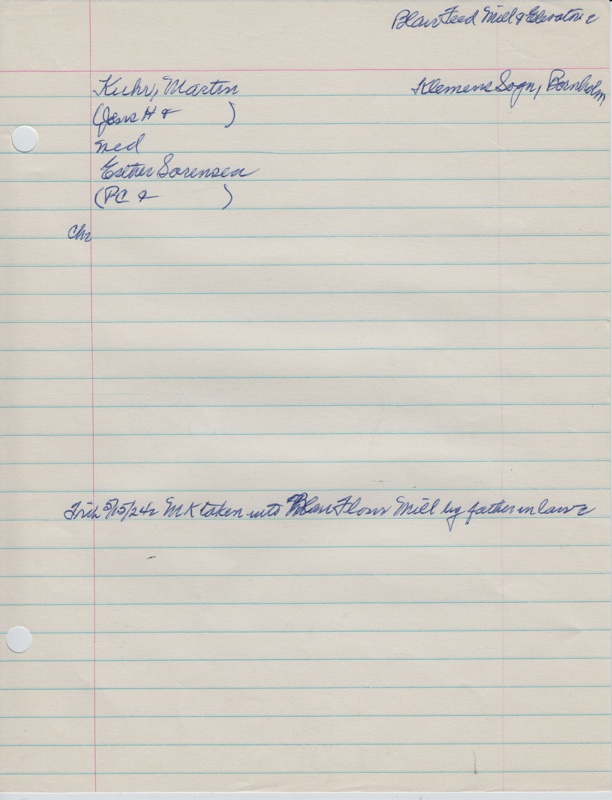 Blair Feed Mill & Elevator
Kuhr, Martin
Klemens Sogn, Bornholm
(Jens H & )
med
Esther Sorensen
(PC & )
Ch
Trib 5/15/24 MK taken into Blair Flour Mill by father in law